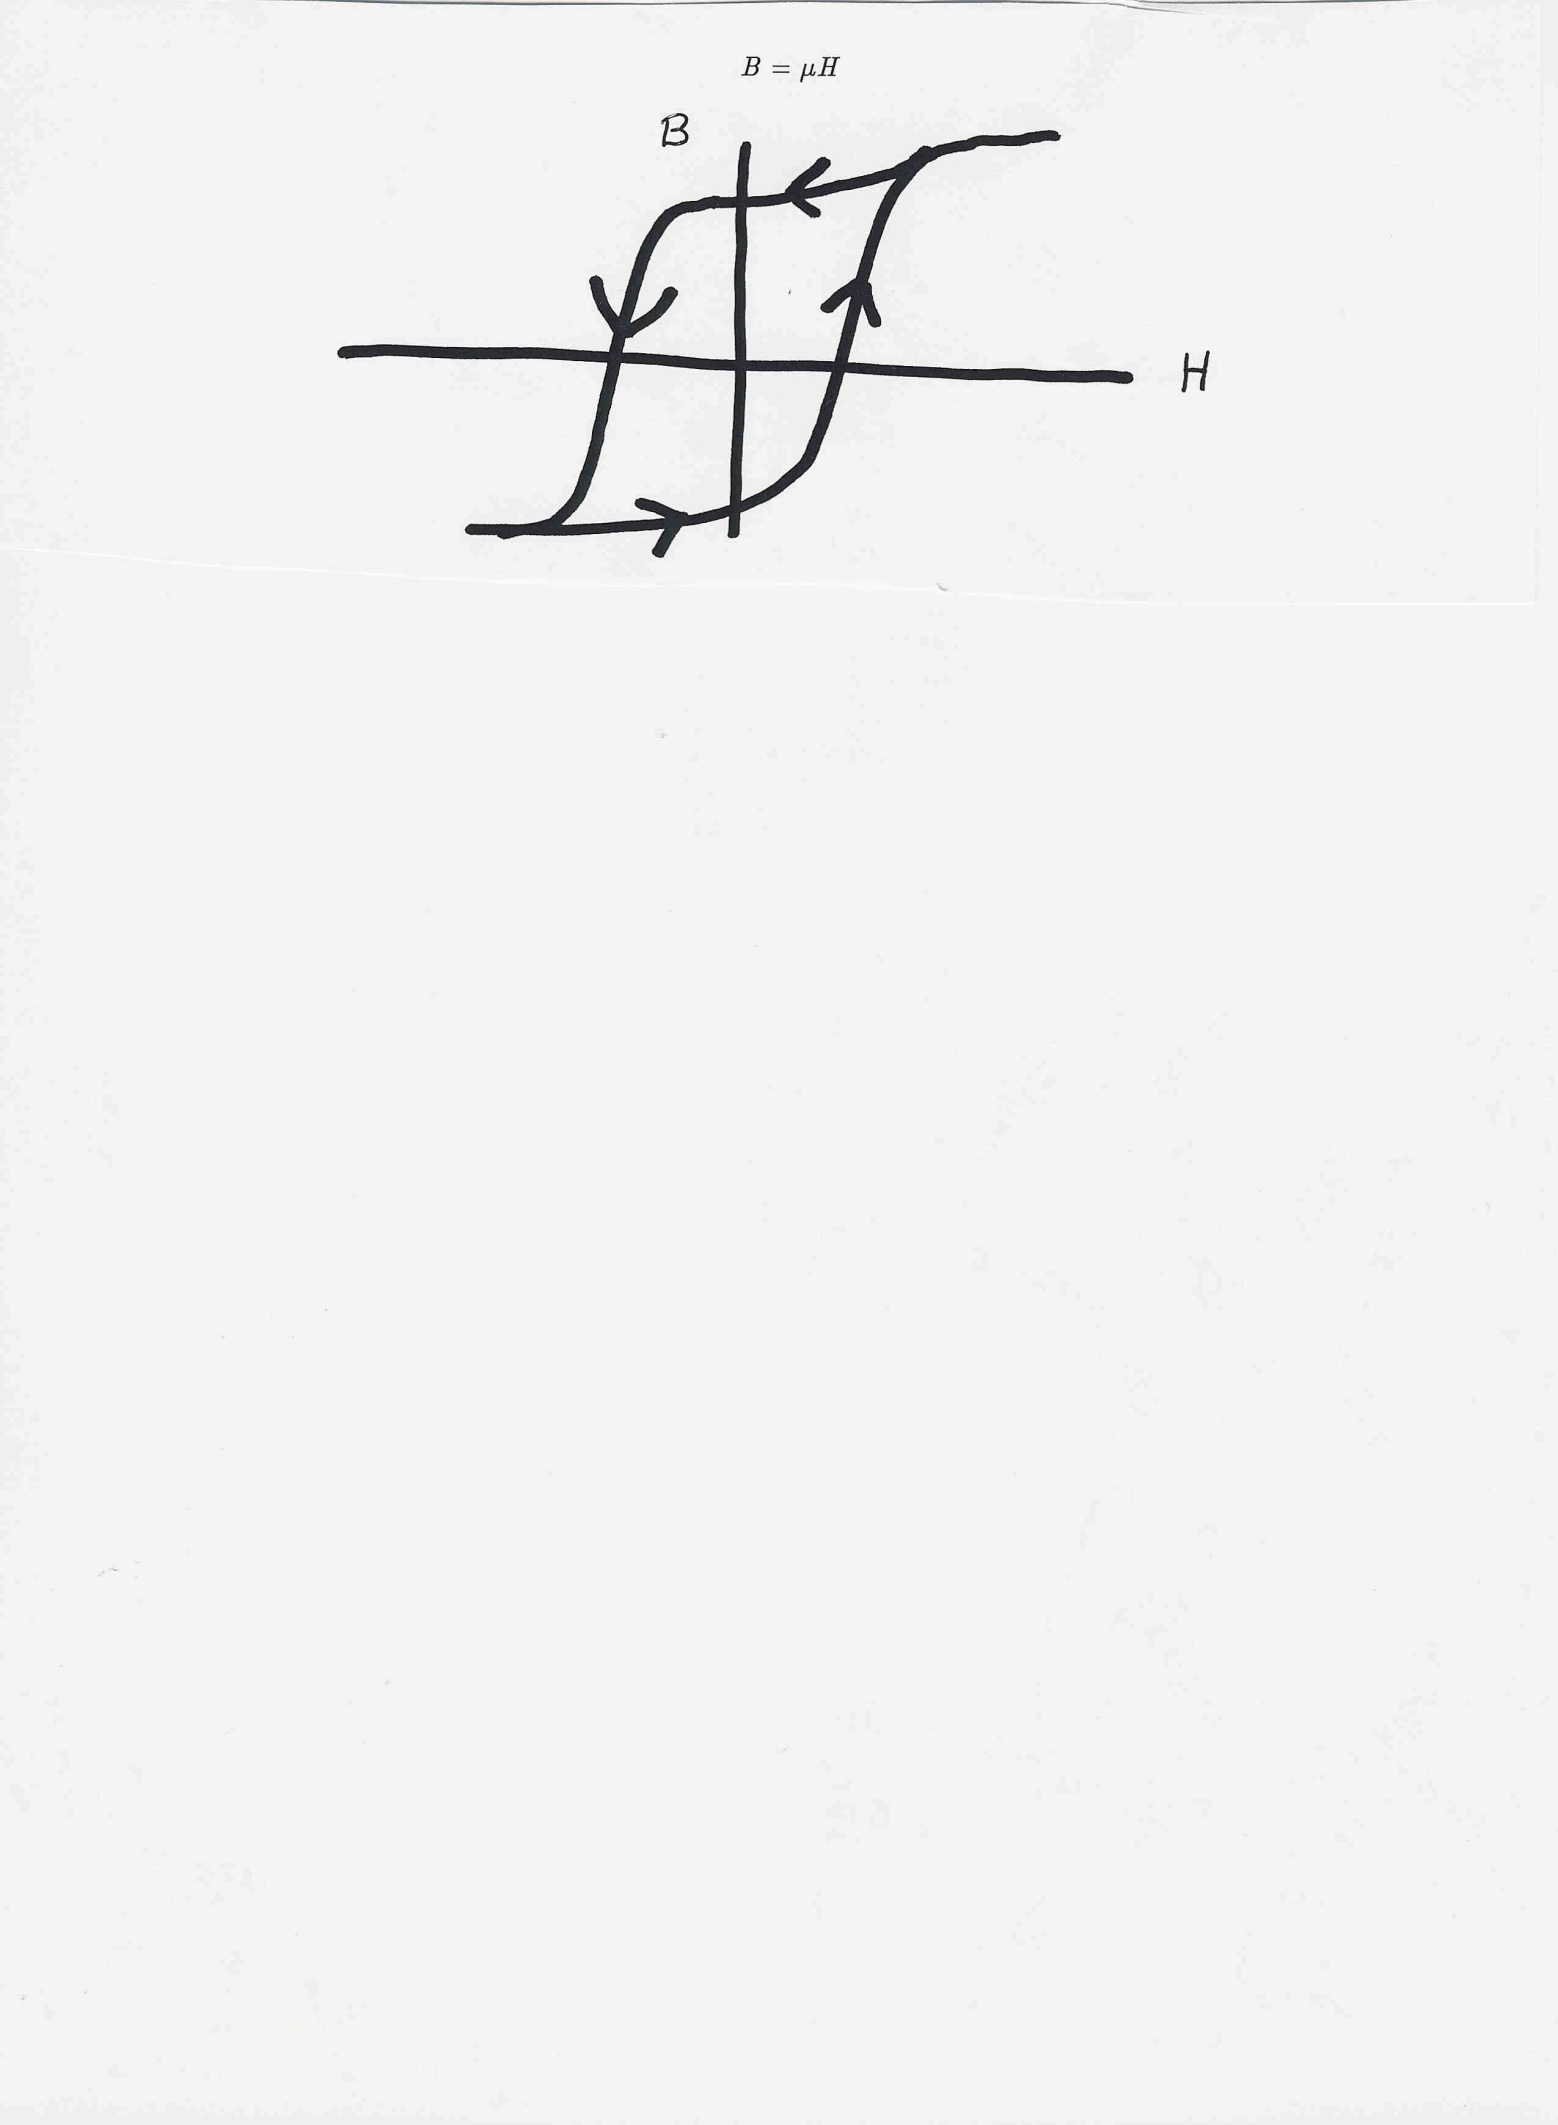 B = μH
B
H